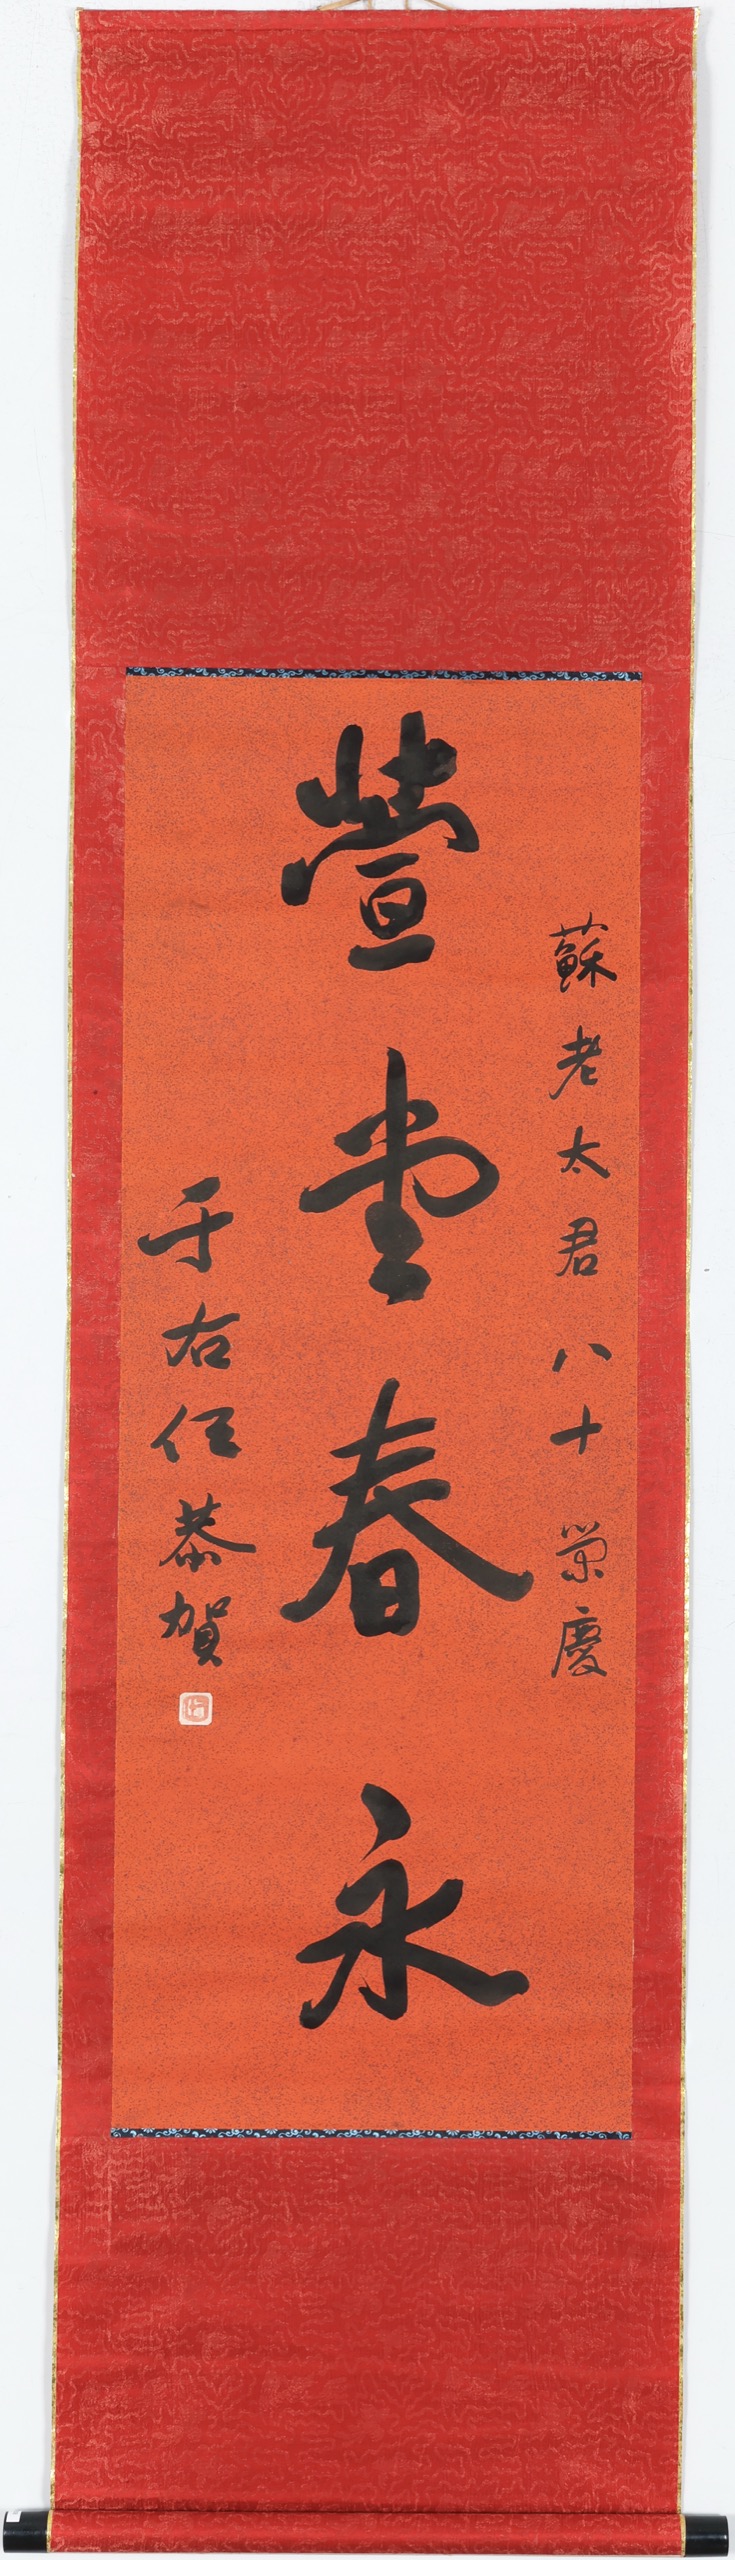 蘇老太君八十榮慶
萱堂春永
于右任恭賀